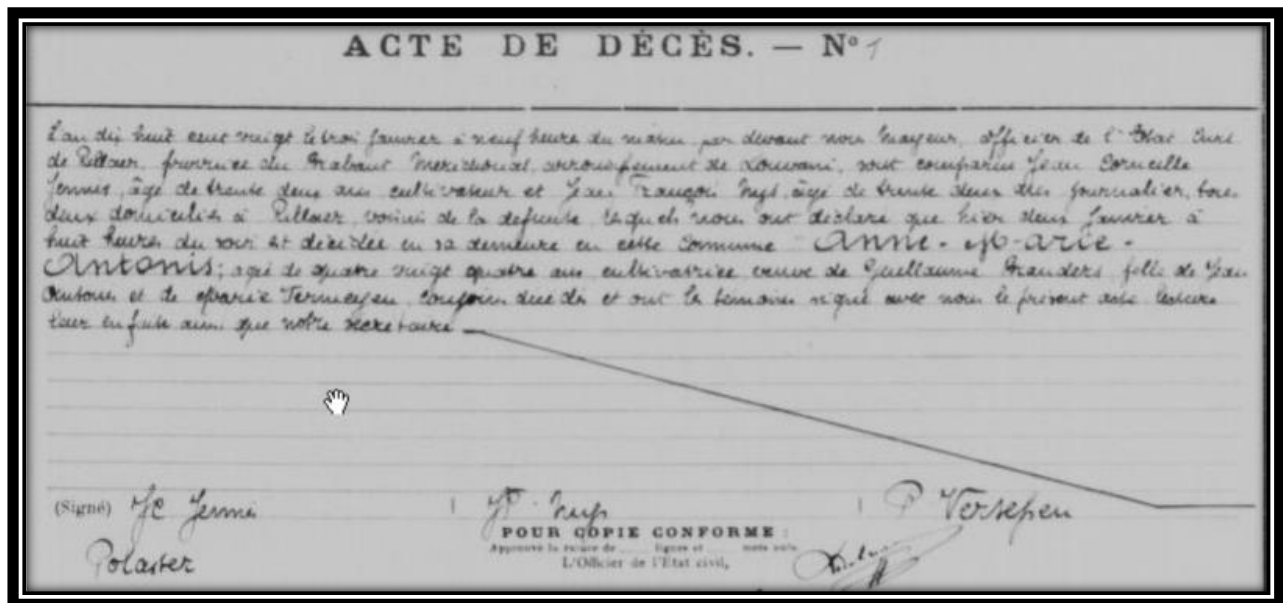 ACTE DE DÉCÈS. — N° 1
L'an dix huit cent vingt le trois Janvier à neuf heure du matin par devant nous Mayeur, officier de l'Etat Civil
de Rillaer, province du Brabant Meridional, arrondissement de Louvain, sont comparus Jean Corneille
Jennes, âgé de trente deux ans cultivateur et Jean François Nys, âgé de trente deux ans journalier, tous
deux domiciliés à Rillaer, voisins de la defunte, lesquels nous ont déclaré que hier deux Janvier à
huit heures du soir est décédée en sa demeure en cette commune Anne-Marie-
Antonis; agée de quatre vingt quatre ans cultivatrice veuve de Guillaume Branders fille de Jean
Antonis et de Marie Vermeyen conjoins decedés et ont les temoins signé avec nous le présent acte lecture
leur en faite ainsi que notre secretaire
(Signé) JC Jennes JF Nys P Versepen
Polaster
POUR COPIE CONFORME :
Approuvé la rature de lignes et mots nuls
L'Officier de l'État civil,